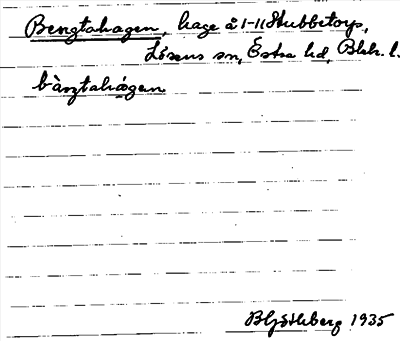 Bengtahagen, hage å 1-11 Stubbetorp,
Lösens sn, Östra hd, Blek. l.
bàŋtahágen
BHjöthberg 1935